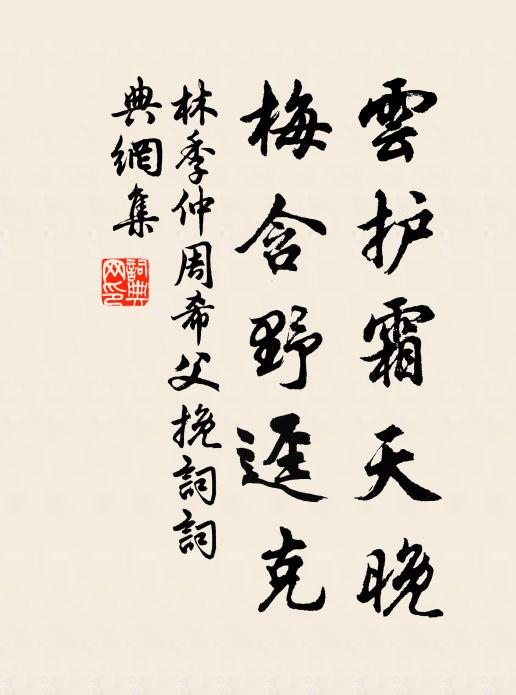 雲护霜天晚
梅含野逕克
林季仲周希父挽詞詞
典網集
詞典網印